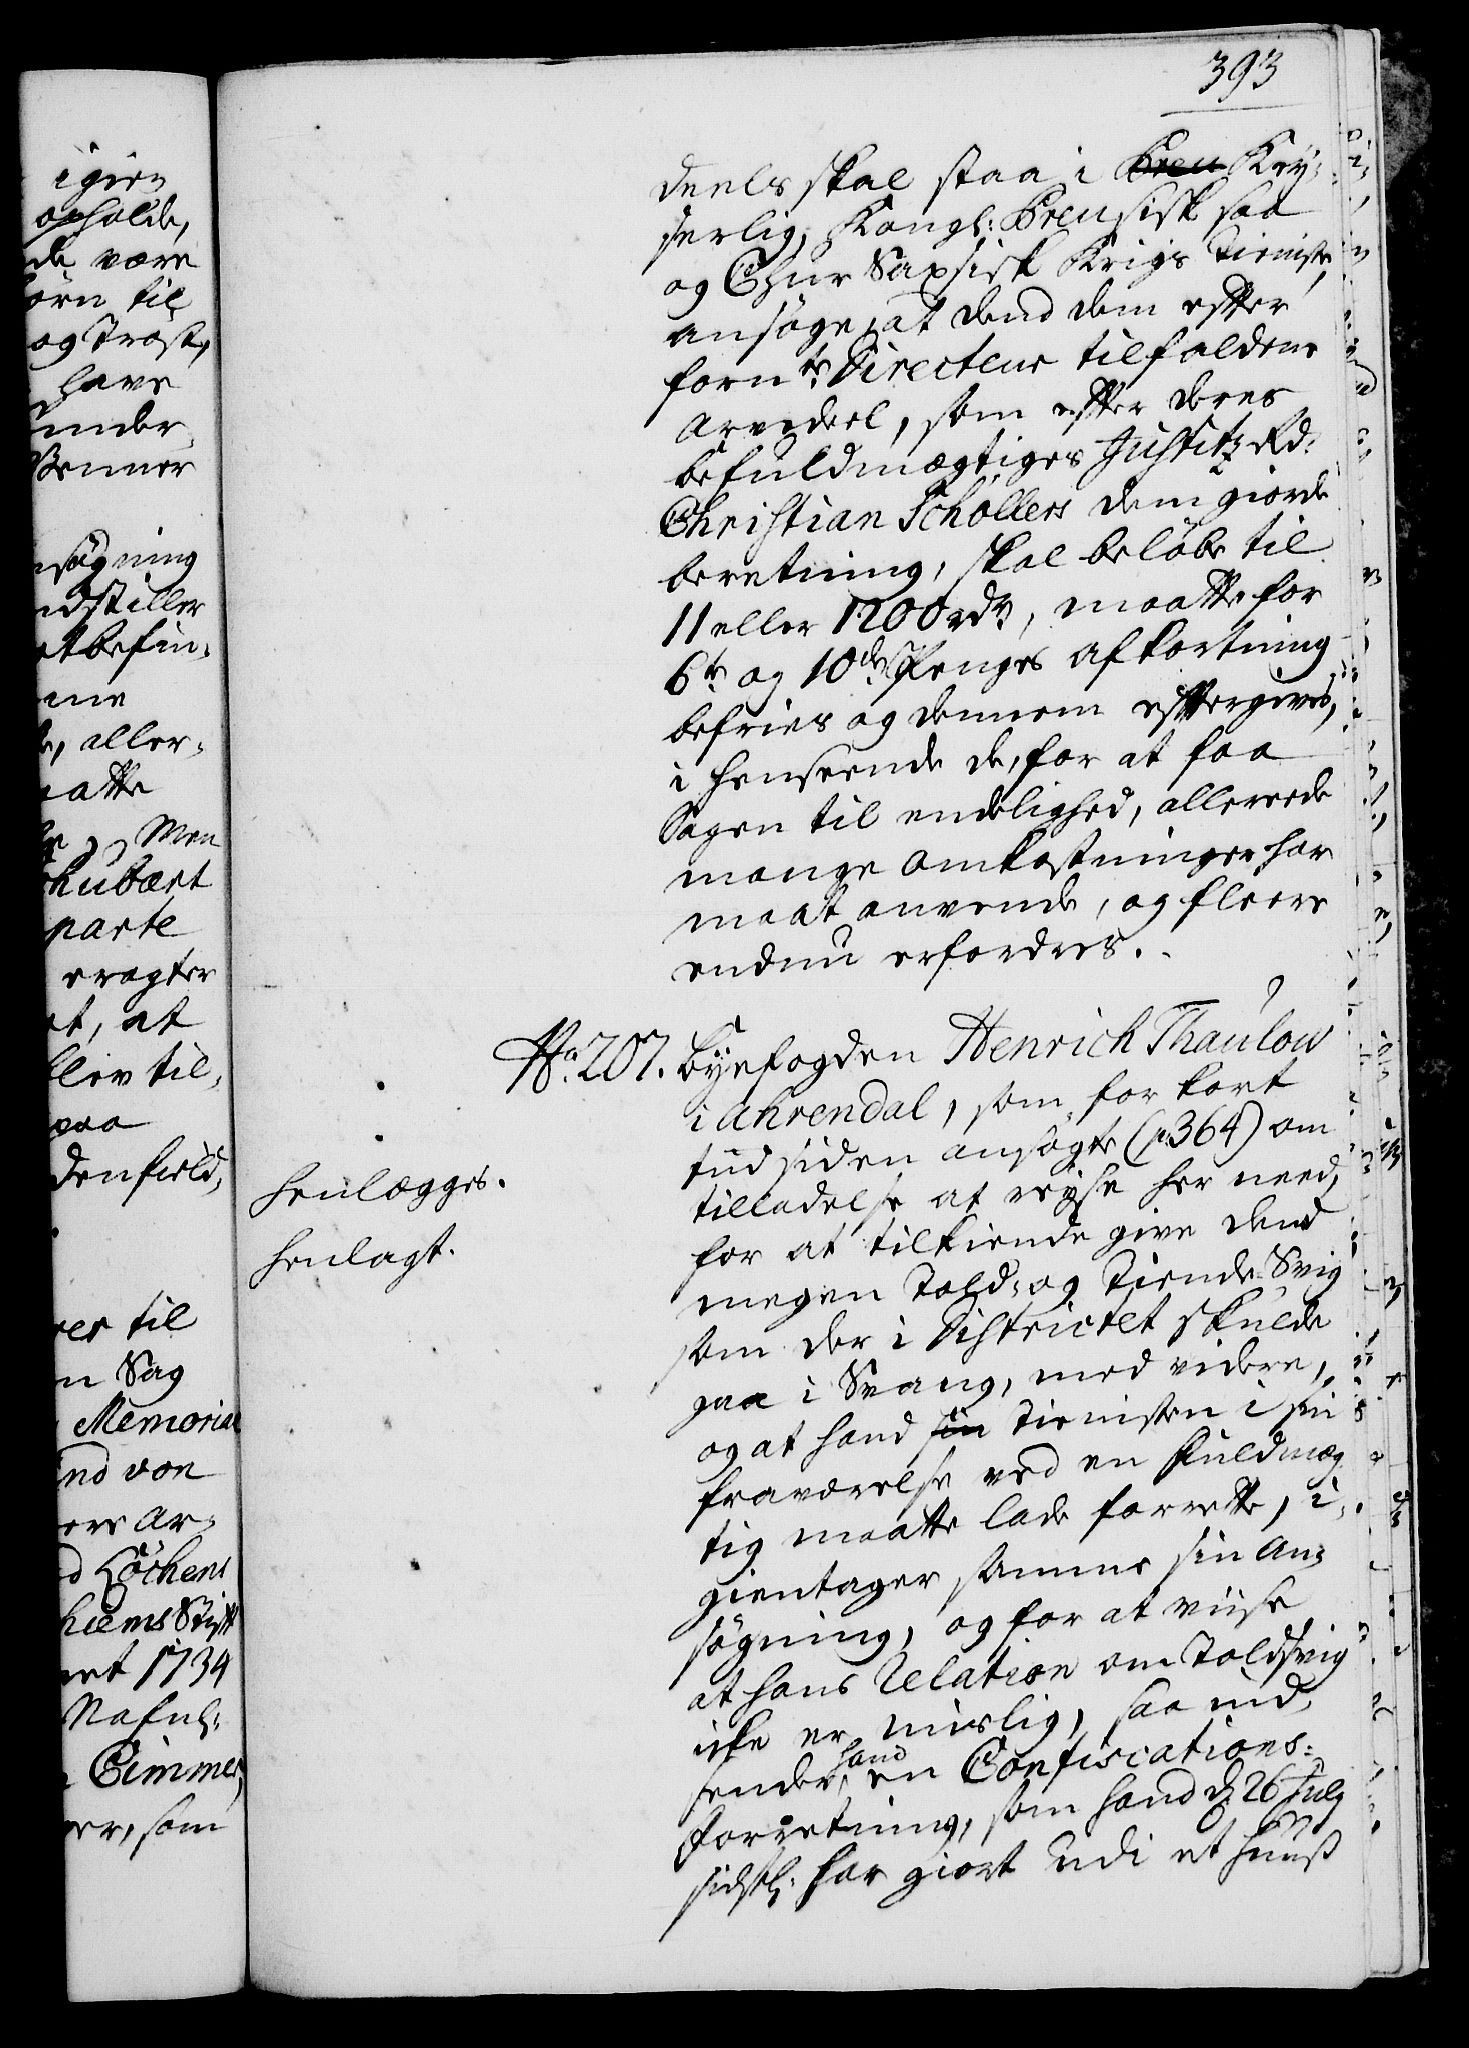 393
deels skal staa i Preu Key-
serlig, Kongl: Preusisk saa
og Chur Saxsisk Krigs Tieniste,
ansøge, at dend dem efter
fornte Directeur tilfaldene
arvedeel, som efter deres
befuldmægtiges Justitz Rd:
Christian Schøllers dem giorde
beretning, skal beløbe til
11 eller 1200 rdr, maatte for
6te og 10de Penges afkortning
befries og dennem eftergives,
i henseende de, for at faa
Sagen til endelighed, allereede
mange omkostninger har
maat anvende, og fleere
endnu erfordres.
No. 207. Byefogden Henrich Thaulow
i Ahrendal, som for kort
tiid siden ansøgte (p. 364) om
tilladelse at reyse her need,
for at tilkiende give dend
megen Told- og Tiende-Svig
som der i Districtet skulde
gaa i Svang, med videre,
og at hand sin Tienisten i sin
fraværelse ved en fuldmæg
tig maatte lade forrette, i-
gientager samme sin An-
søgning, og for at viise
at hans Relation om Toldsvig
icke er urislig, saa ind-
sender hand en Confiscations-
Forretning, som hand d. 26 July
sidstl: har giort udi et Huuß
henlægges.
henlagt.
igien
opholde,
de være
ørn til
og Trøst,
have
under
Venner
nsøgning
ndstiller
atbefin-
ene
aller-
aatte
Men
hubært
parte
eragter
t, at
blev til-
paa
denfield,
rer til
n Sag
Memorial
end von
ore Ar-
d Løchens
hiems Stift
ret 1734
Nafnl:
Cimmer,
er, som